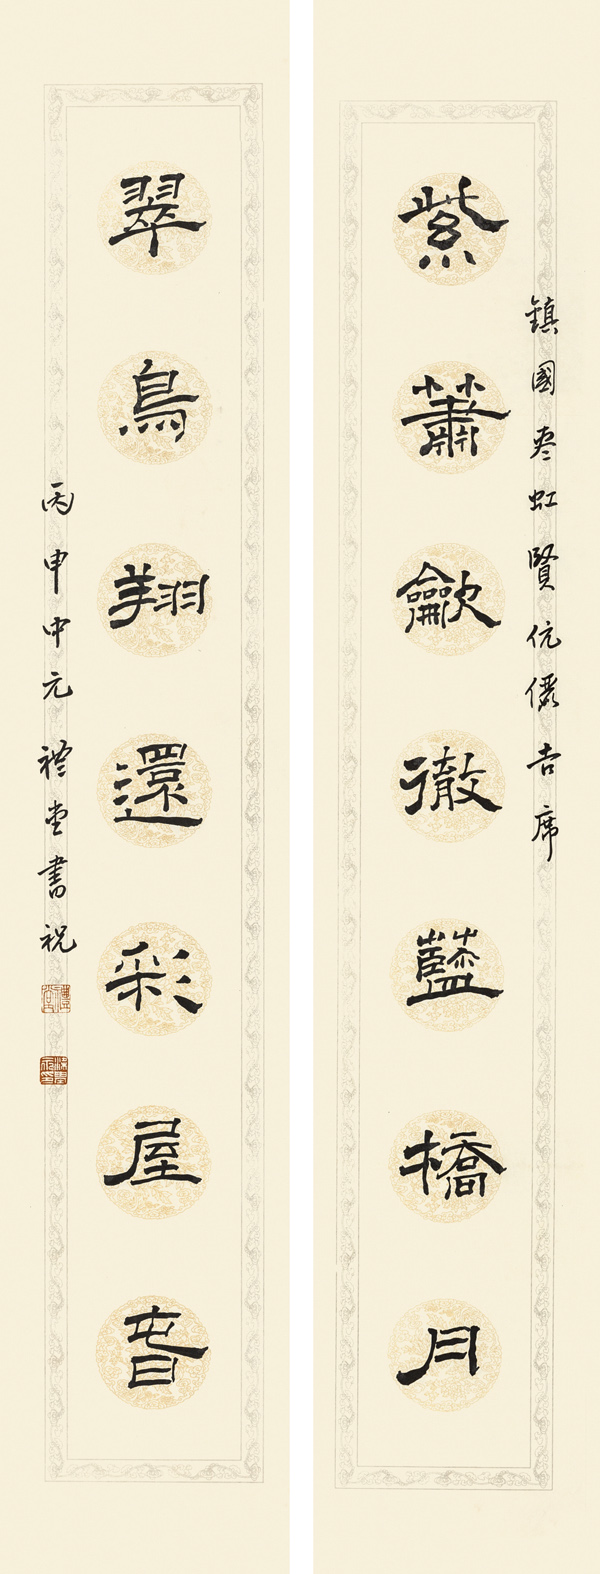 鎮國虹賢伉儷吉席
紫簫龡徹藍橋月
翠鳥翔還彩屋旾
丙申中元禮堂書祝